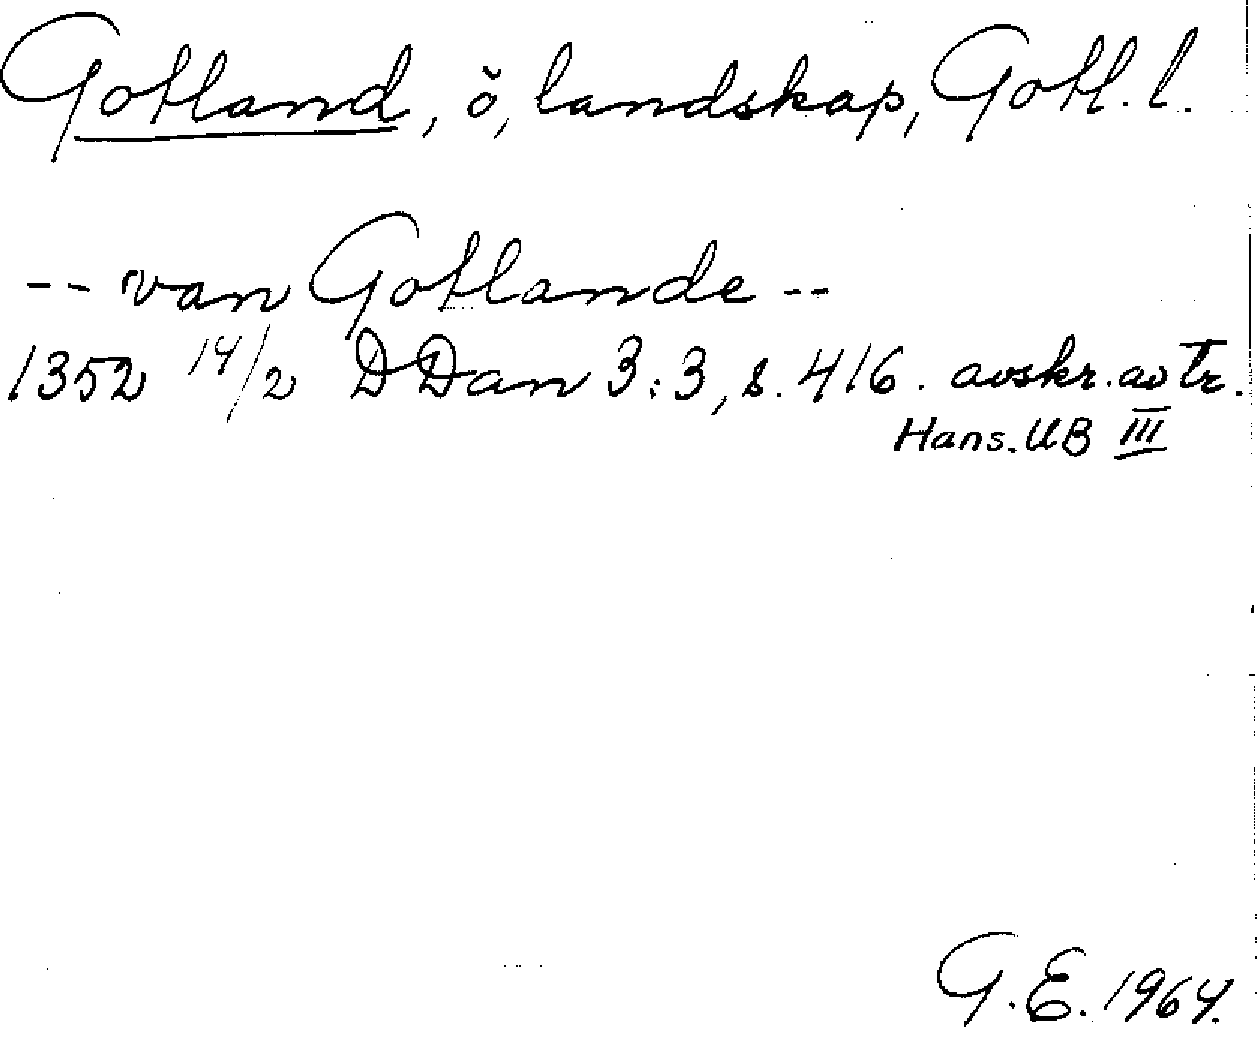 Gotland, ö, landskap, Gotl. l.
-- van Gotlande --
1352 14/2 DDan 3:3, s. 416. avskr. av Tr.
Hans. UB III
G.E. 1964.